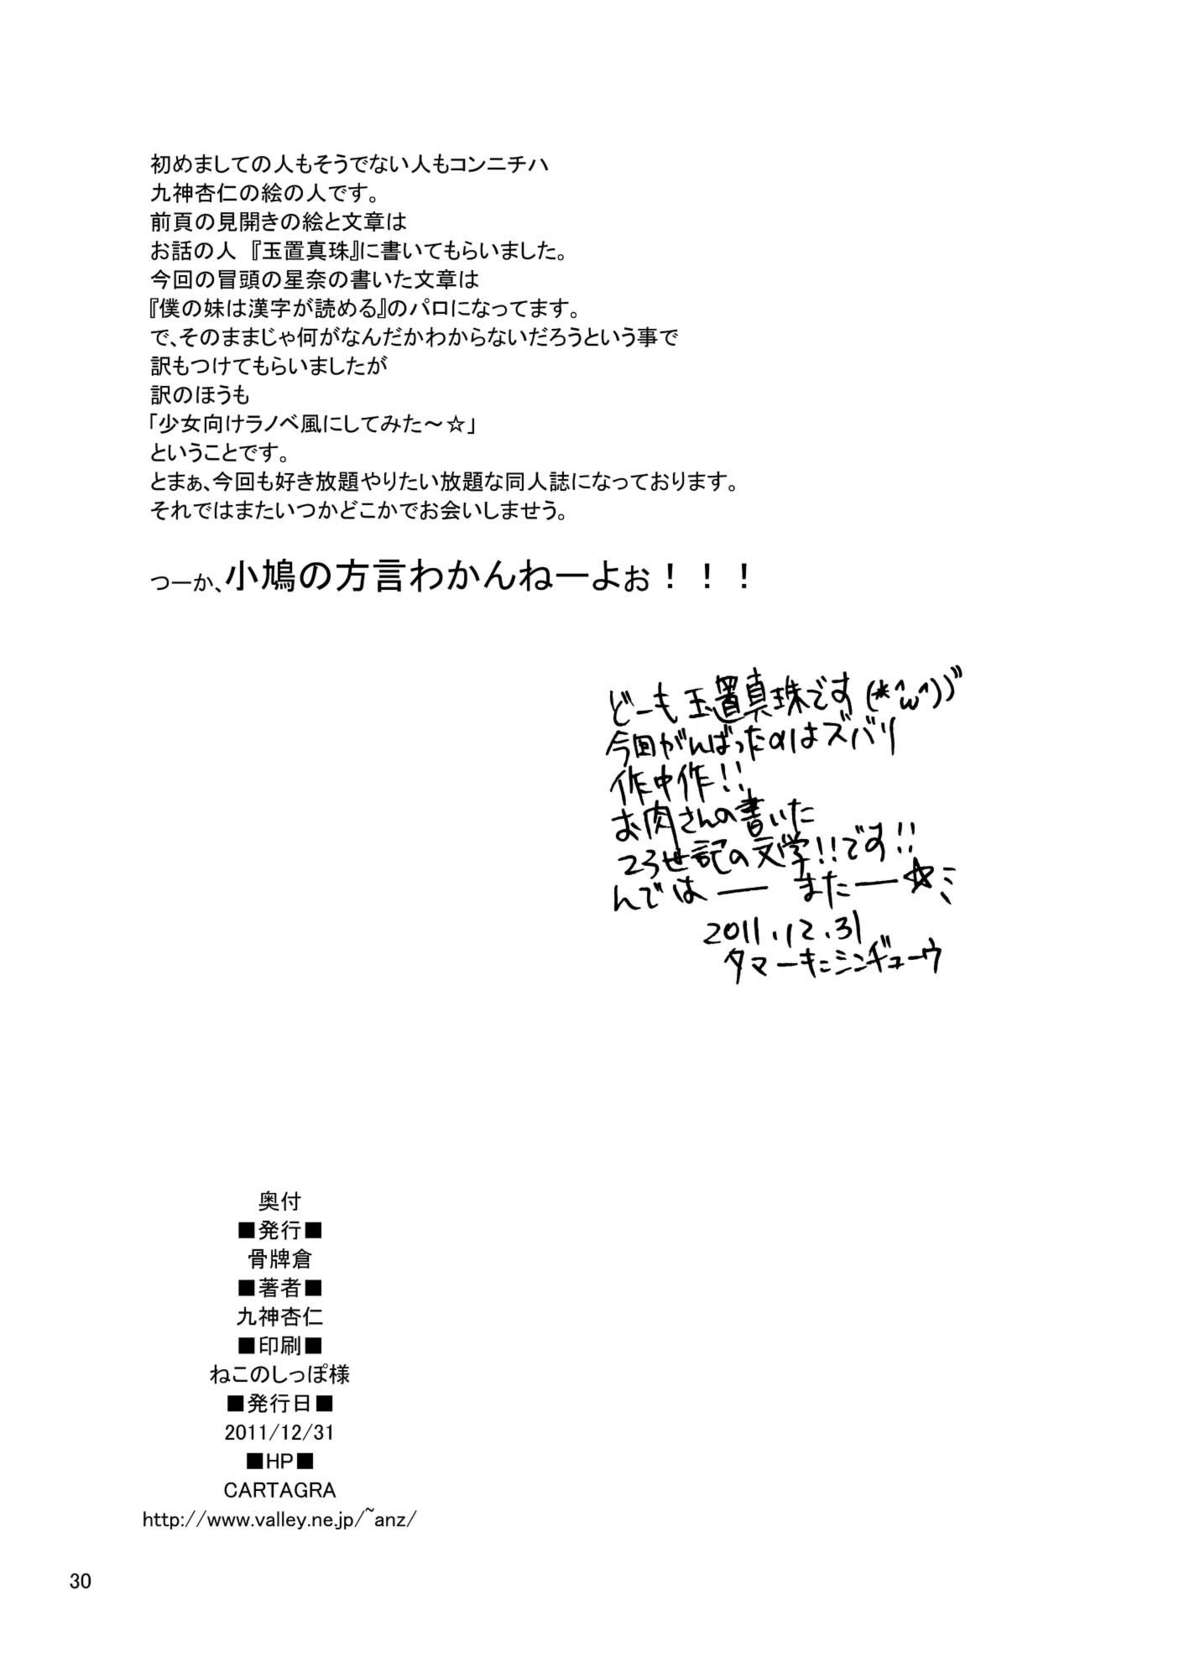 初めましての人もそうでない人もコンニチハ
九神杏仁の絵の人です。
前頁の見開きの絵と文章は
お話の人『玉置真珠』に書いてもらいました。
今回の冒頭の星奈の書いた文章は
『僕の妹は漢字が読める』のパロになってます。
で、そのままじゃ何がなんだかわからないだろうという事で
訳もつけてもらいましたが
訳のほうも
「少女向けラノベ風にしてみた～☆」
ということです。
とまぁ、今回も好き放題やりたい放題な同人誌になっております。
それではまたいつかどこかでお会いしませう。
つーか、小鳩の方言わかんねーよぉ！！！
どーも玉置真珠です(*^ω^)ゞ
今回がんばったのはズバリ
作中作!!
お肉さんの書いた
23世記の文学!!です!!
んではー またー☆ミ
2011.12.31
タマーキ=シンギューウ
奥付
■発行■
骨牌倉
■著者■
九神杏仁
■印刷■
ねこのしっぽ様
■発行日■
2011/12/31
■HP■
CARTAGRA
http://www.valley.ne.jp/~anz/
30